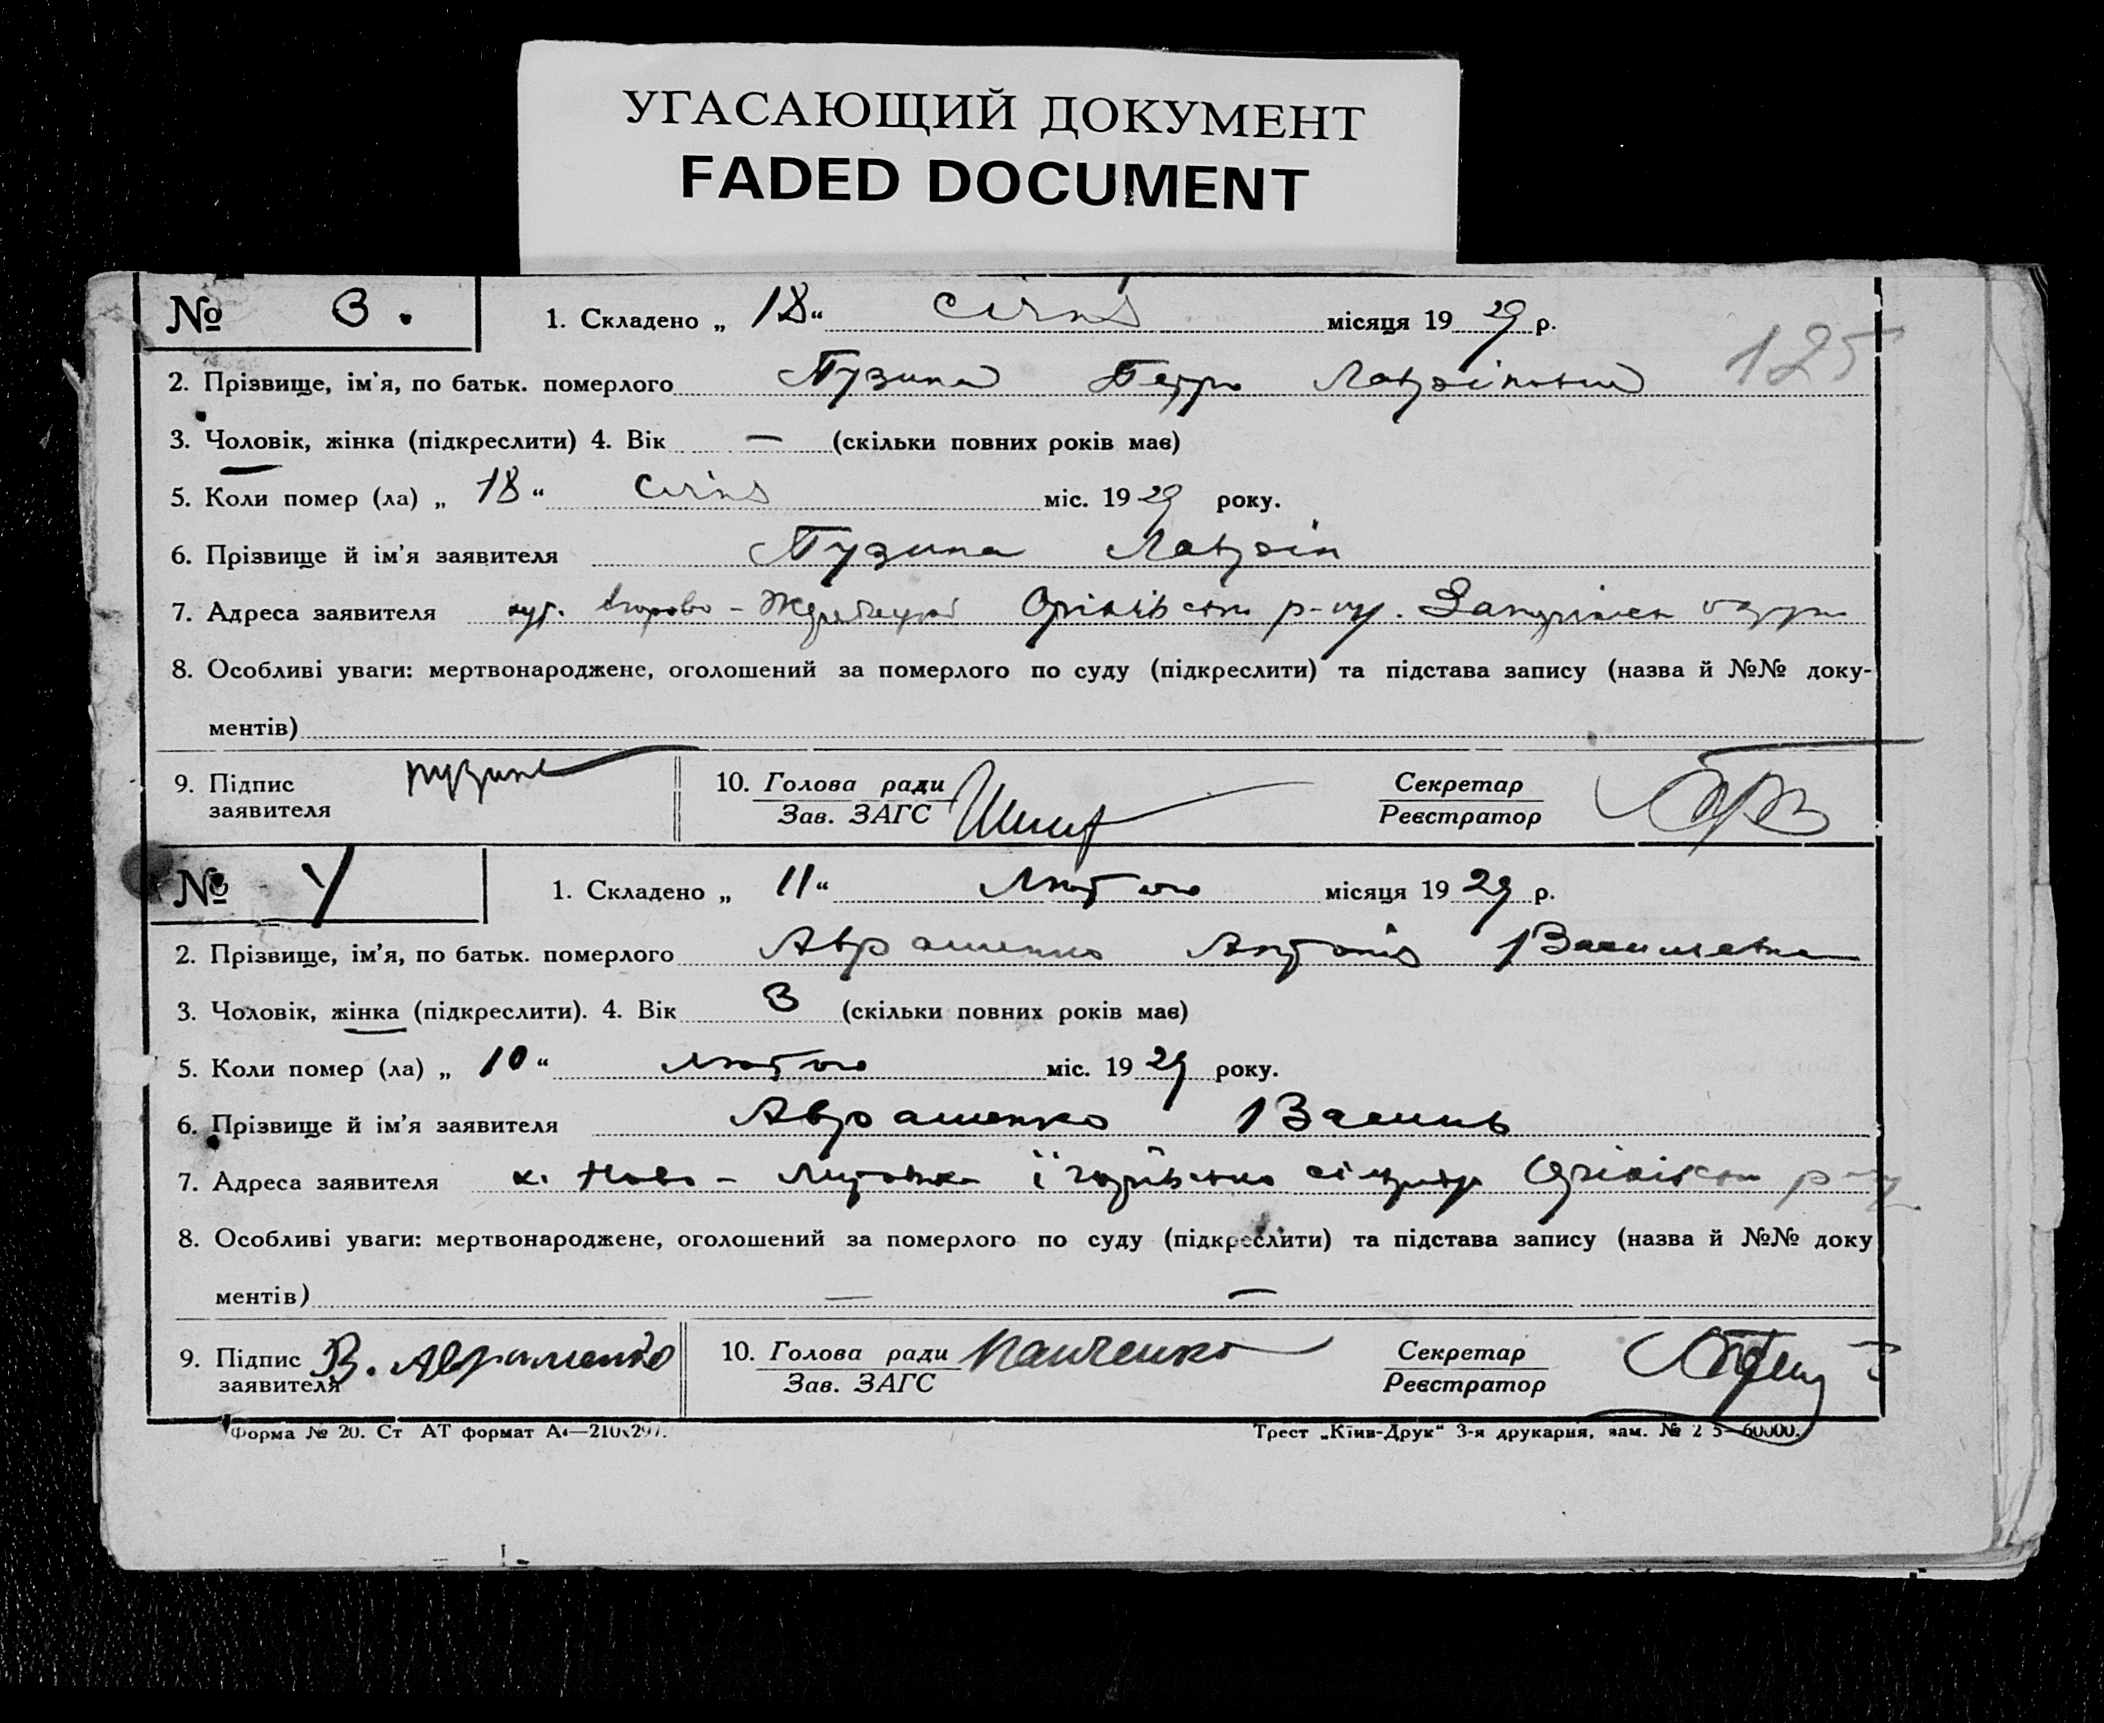 УГАСАЮЩИЙ ДОКУМЕНТ
FADED DOCUMENT
№ 3. 1. Складено „ 18 “ січня місяця 19 29 р.
125
2. Прізвище, ім'я, по батьк. померлого Пузина Петро
3. Чоловік, жінка (підкреслити) 4. Вік — (скільки повних років має)
5. Коли помер (ла) „ 18 “ січня міс. 19 29 року.
6. Прізвище й ім'я заявителя Пузина
7. Адреса заявителя хут. Оріхівськ р-ну. Запоріжськ округи
8. Особливі уваги: мертвонароджене, оголошений за померлого по суду (підкреслити) та підстава запису (назва й №№ доку-
ментів)
9. Підпис заявителя Пузина 10. Голова ради Зав. ЗАГС Секретар Реєстратор
№ 4 1. Складено „ 11 “ Лютого місяця 19 29 р.
2. Прізвище, ім'я, по батьк. померлого Авраменко Антонія Васильевна
3. Чоловік, жінка (підкреслити). 4. Вік 3 (скільки повних років має)
5. Коли помер (ла) „ 10 “ лютого міс. 19 29 року.
6. Прізвище й ім'я заявителя Авраменко Василь
7. Адреса заявителя х. Ново - Оріхівськ р-ну
8. Особливі уваги: мертвонароджене, оголошений за померлого по суду (підкреслити) та підстава запису (назва й №№ доку
ментів) — —
9. Підпис заявителя В. Авраменко 10. Голова ради Зав. ЗАГС Панченко Секретар Реєстратор
Форма № 20. Ст АТ формат А4—210х297.
Трест „Київ-Друк“ 3-я друкарня, зам. № 2 5—60000.